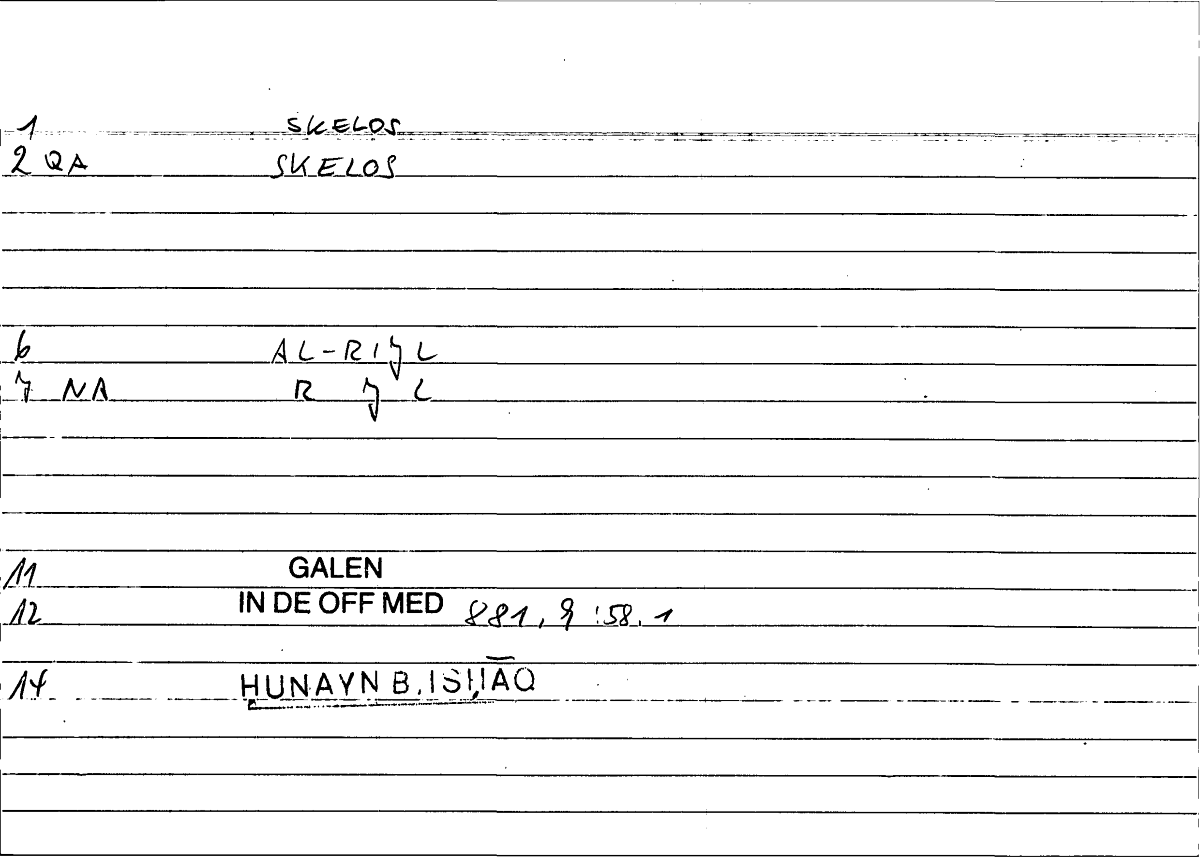 1 SKELOS
2 QA SKELOS
6 AL-RIJL
7 NA R J L
11 GALEN
12 IN DE OFF MED 881, 9 :58. 1
14 HUNAYN B. ISḤĀQ